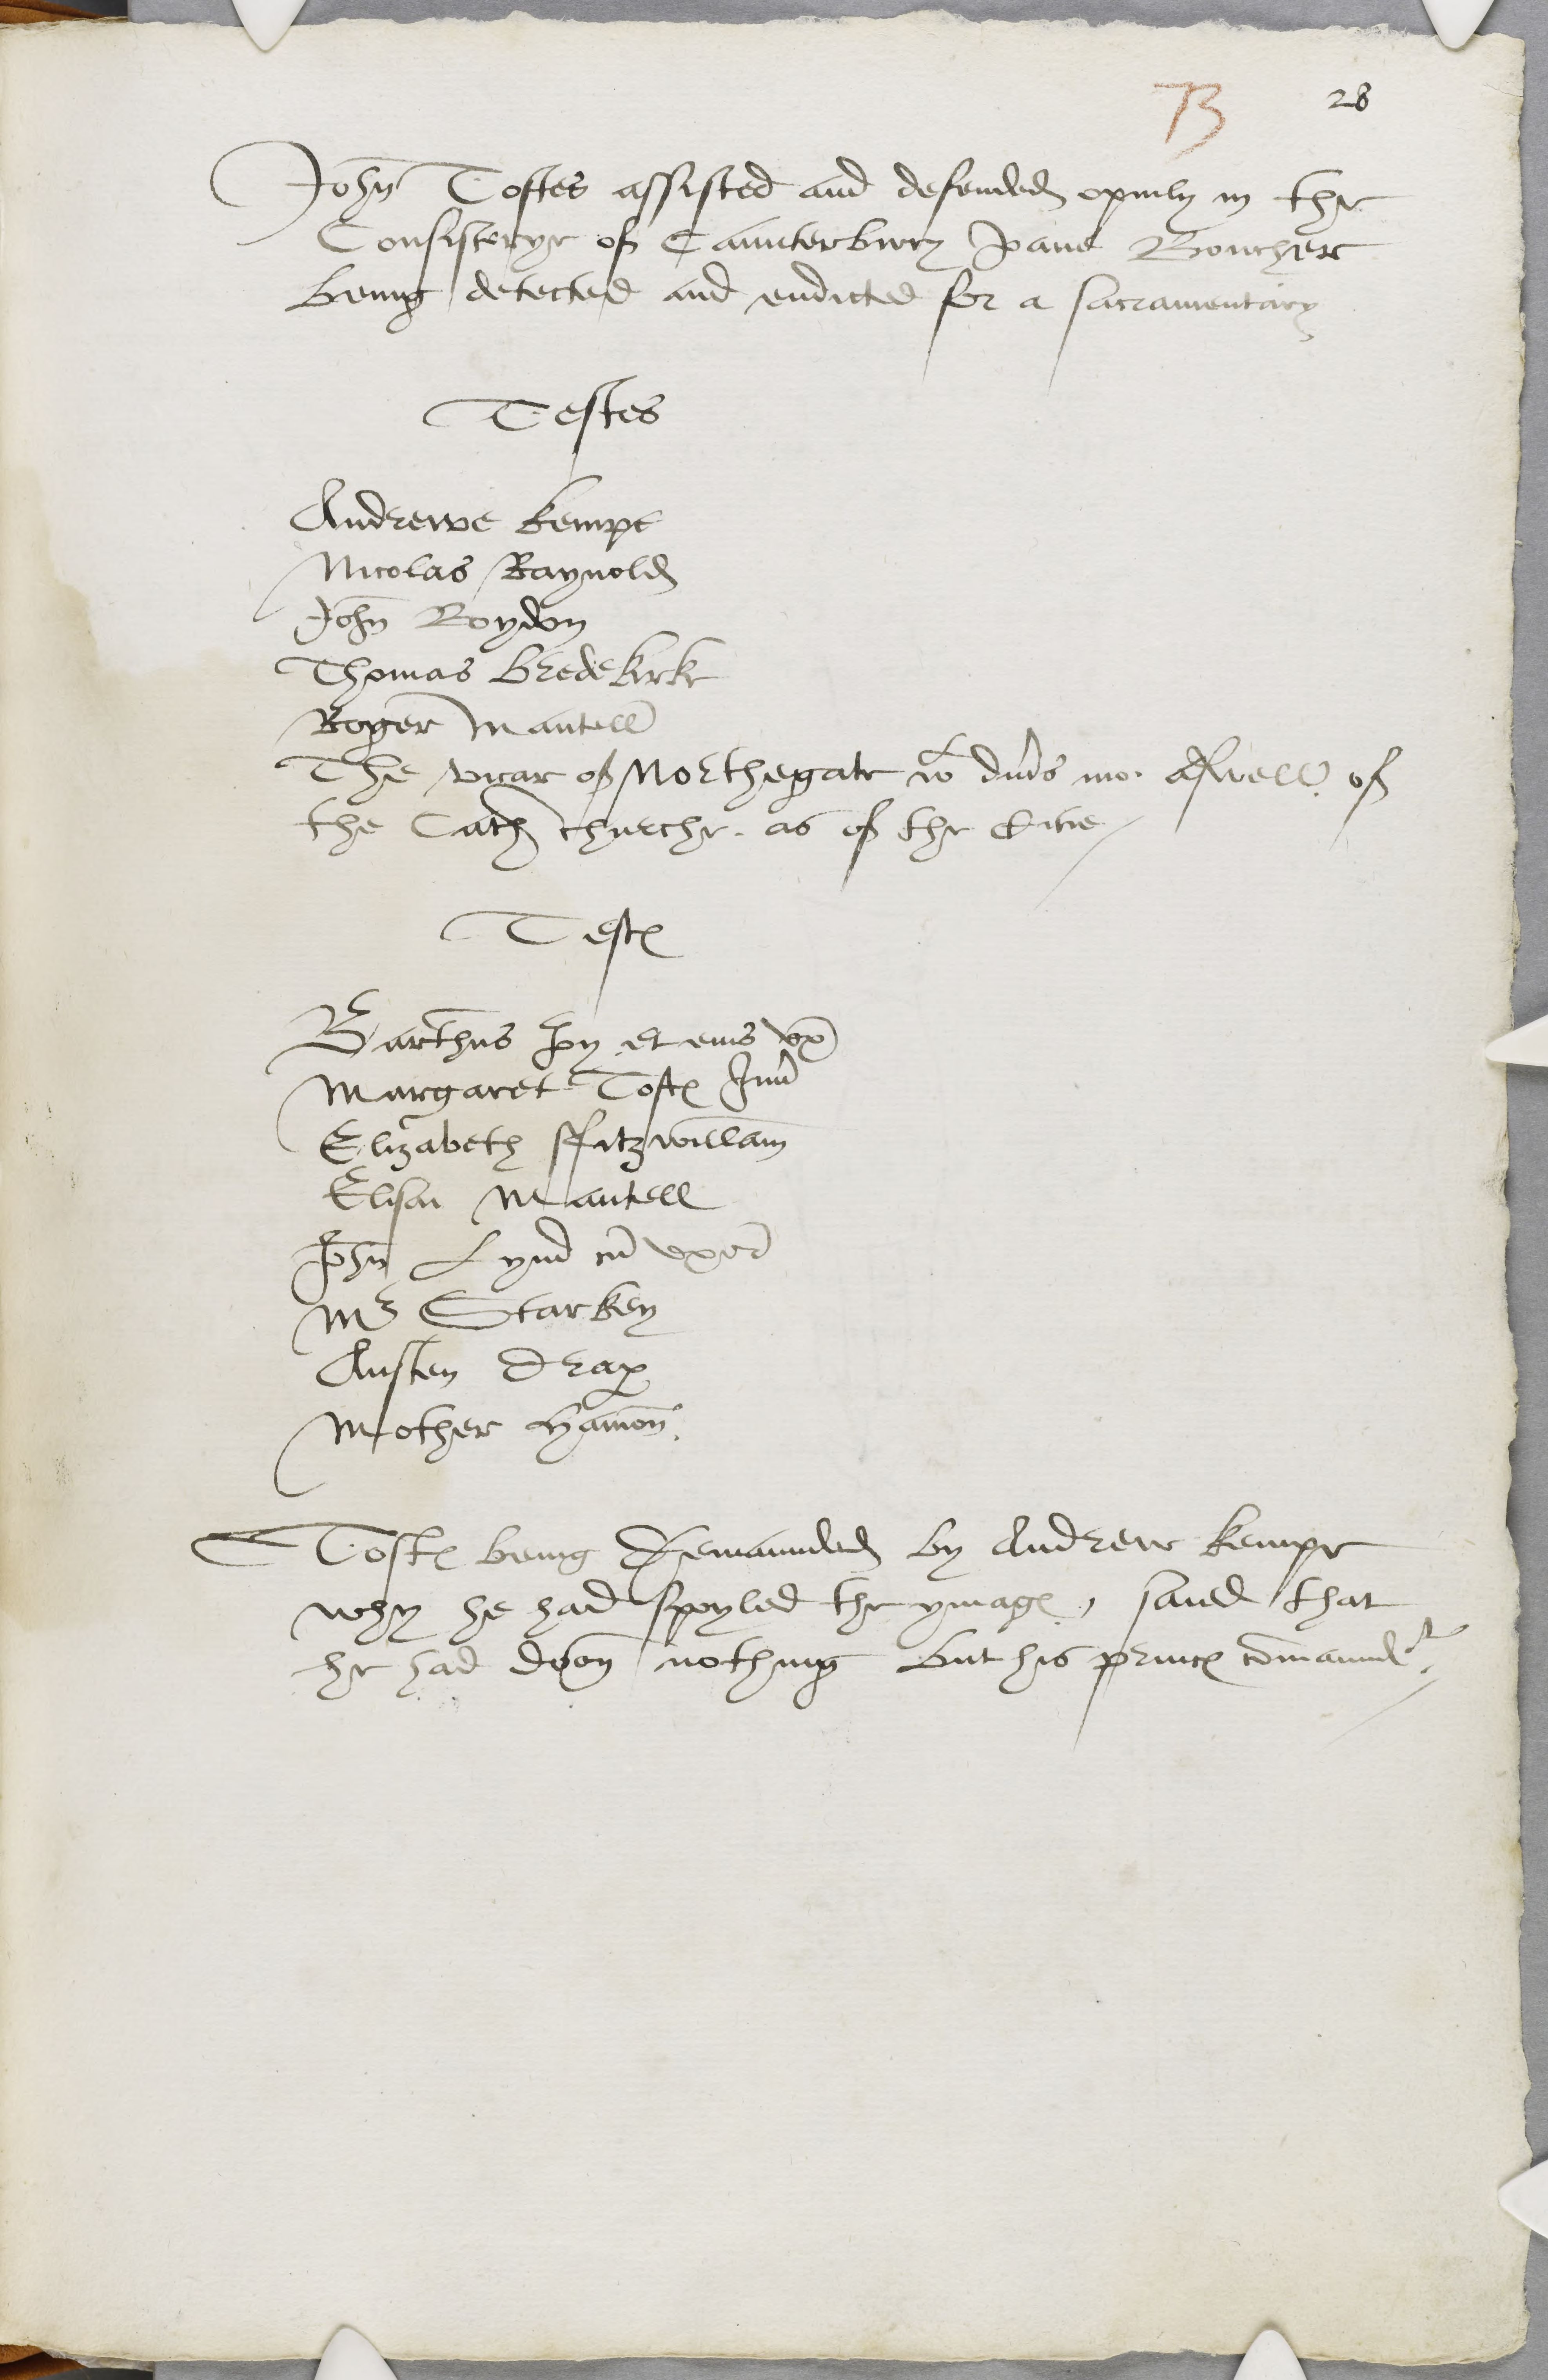 73 28
John Toftes assisted and defended opinly in the
Consistorye of Caunterbury Joane Boucher
being detected and endicted for a sacramentary
Testes
Andrewe kempe
Nicolas Raynold
John Boydon
Thomas Bredekirke
Roger Mantell
The vicar of Northegate wt diuers mo. aswell of
the Cath churche. as of the Citie
Testes
Barthus Joy et eius vx
Margaret Toftes Juni
Elizabeth ffitzwillam
Elisai Mantell
John Lynd cu vxor
Mr Starkey
Austen Drap
Mother Hamon.
Toftes being Demaunded by Andrew kempe
why he had spoyled the ymages, saied that
he had doon nothing but his princes comaundt